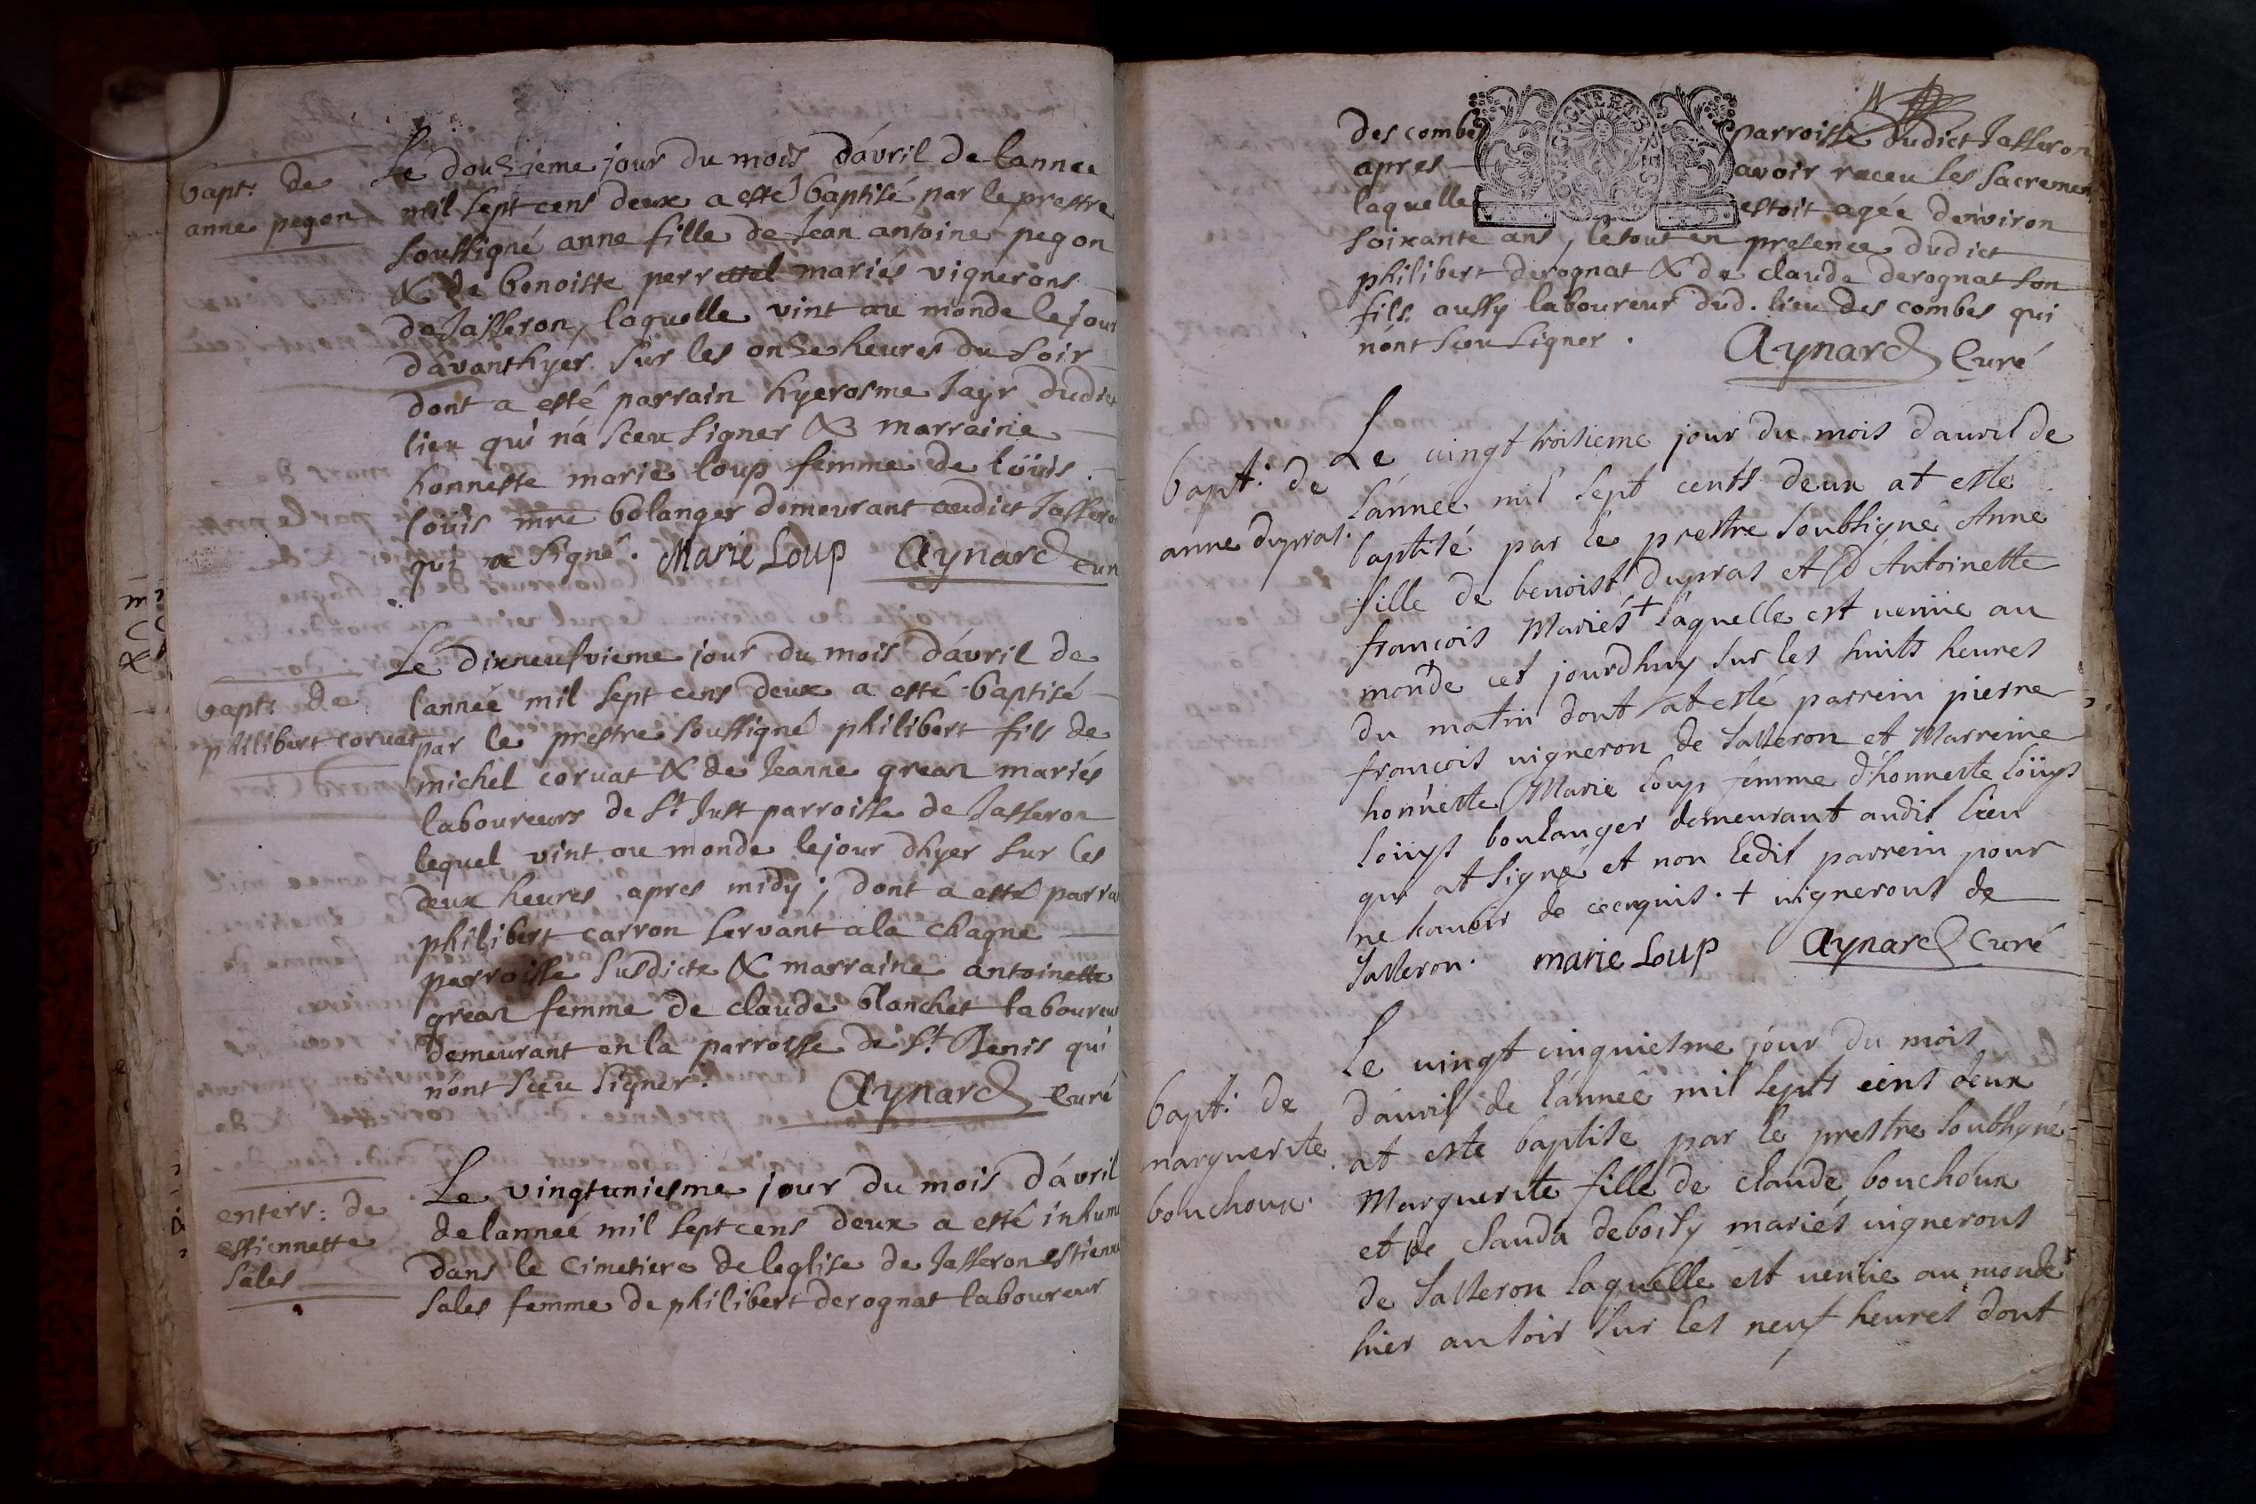 bapt. de
anne pegon
Le douzieme jour du mois d'avril de lannee
mil sept cens deux a esté baptisé par le prestre
soussigné anne fille de Jean antoine pegon
& de benoitte perrettel mariés vignerons
de Jasseron, laquelle vint au monde le jour
d'avanthyer sur les onze heures du soir
dont a esté parrain hyerosme Jayr dudict
lieu qui n'a sceu signer & marraine
honneste marie loup femme de loüis
loüis mre bolanger demeurant audict Jasseron
qui a signé. Marie Loup Aynard Curé
bapt. de
philibert corvat
Le dixneufvieme jour du mois d'avril de
l'année mil sept cens deux a esté baptisé
par le prestre soussigné philibert fils de
michel corvat & de Jeanne grean mariés
laboureurs de St Just parroisse de Jasseron
lequel vint au monde le jour dhyer sur les
deux heures apres midy; dont a esté parra
philibert carron servant a la chagne
parroisse susdicte & marraine antoinette
grean femme de claude blanchet laboureur
demeurant en la parroisse de St Denis qui
n'ont sceu signer. Aynard Curé
enterr: de
estiennette
sales
Le vingtuniesme jour du mois d'avril
de lanneé mil sept cens deux a esté inhumé
dans le Cimetiere de leglise de Jasseron estienne
sales femme de philibert derognat laboureur
des combes parroisse dudict Jasseron
apres avoir receu les sacremen
laquelle estoit agée d'environ
soixante ans, le tout en presence dudict
philibert derognat & de claude derognat son
fils aussy laboureur dud. lieu des combes qui
n'ont sceu signer. Aynard Curé
bapt. de
anne dupras.
Le vingt troisieme jour du mois d'auril de
l'année mil sept cents deux at este
baptisé par le prestre soubsigné Anne
fille de benoist dupras et d'Antoinette
françois Mariés + laquelle est venüe au
monde cet jourdhuy sur les huits heures
du matin dont at esté parrein pierre
françois vigneron de Jasseron et Marreine
honneste Marie loup femme d'honneste loüys
loüys boulanger demeurant audit lieu
qui at signé et non ledit parrein pour
ne scauoir de ce enquis. + vignerons de
Jasseron. marie Loup Aynard Curé
bapt. de
marguerite
bouchoux.
Le vingt cinquiesme jour du mois
d'auril de l'année mil septs cens deux
at este baptise par le prestre soubsigné
Marguerite fille de claude bouchoux
et de Clauda deboisy mariés vignerons
de Jasseron laquelle est venüe au monde
hier au soir sur les neuf heures dont